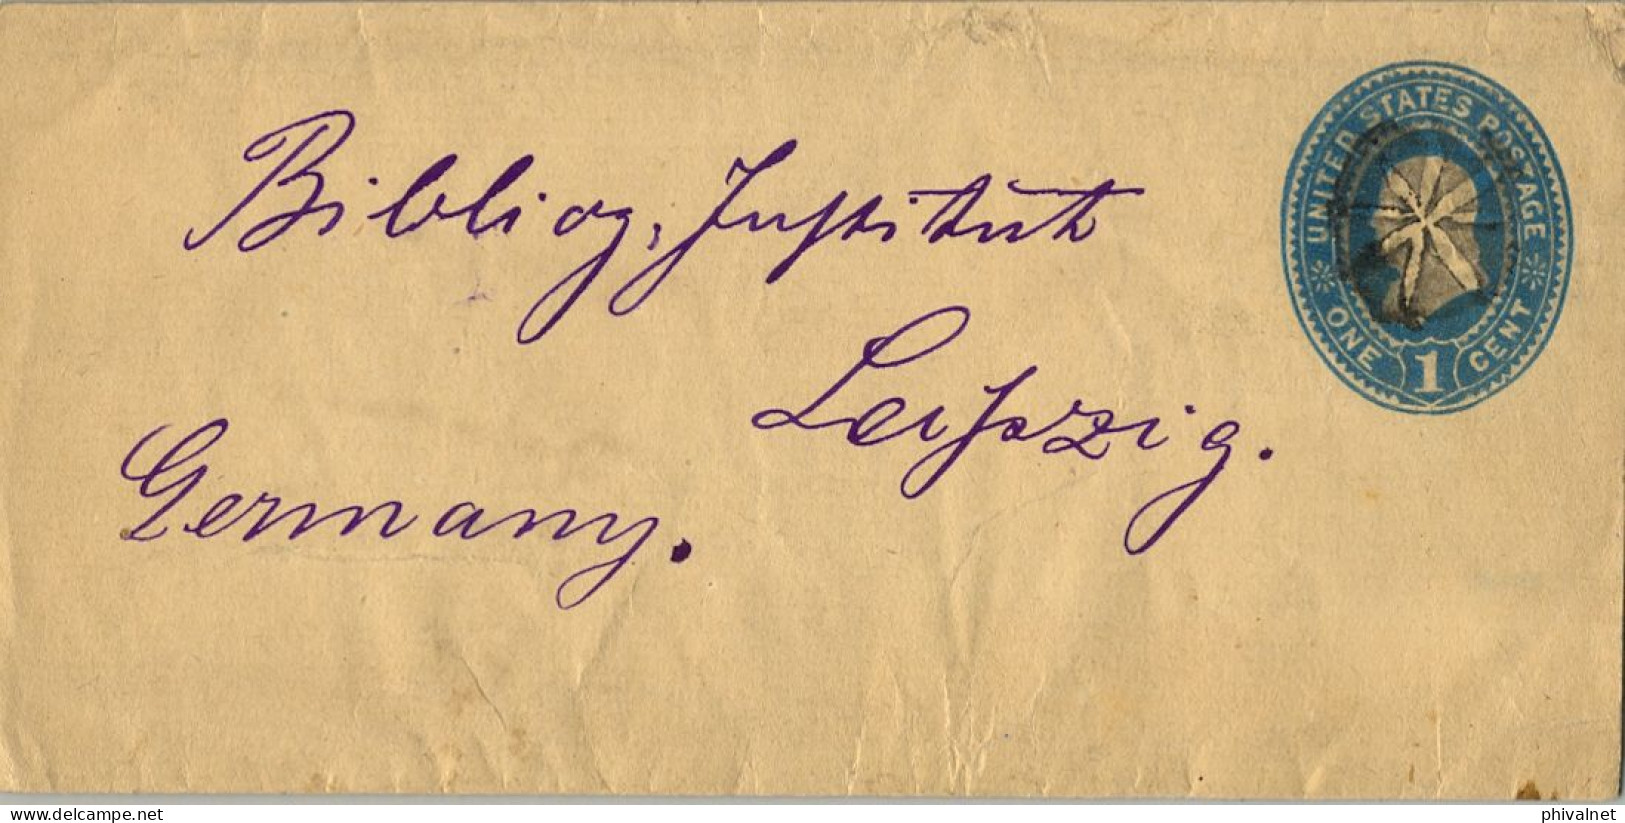 UNITED STATES POSTAGE
ONE 1 CENT
Bibliog. Institut
Leipzig.
Germany.
www.delcampe.net
phivalnet